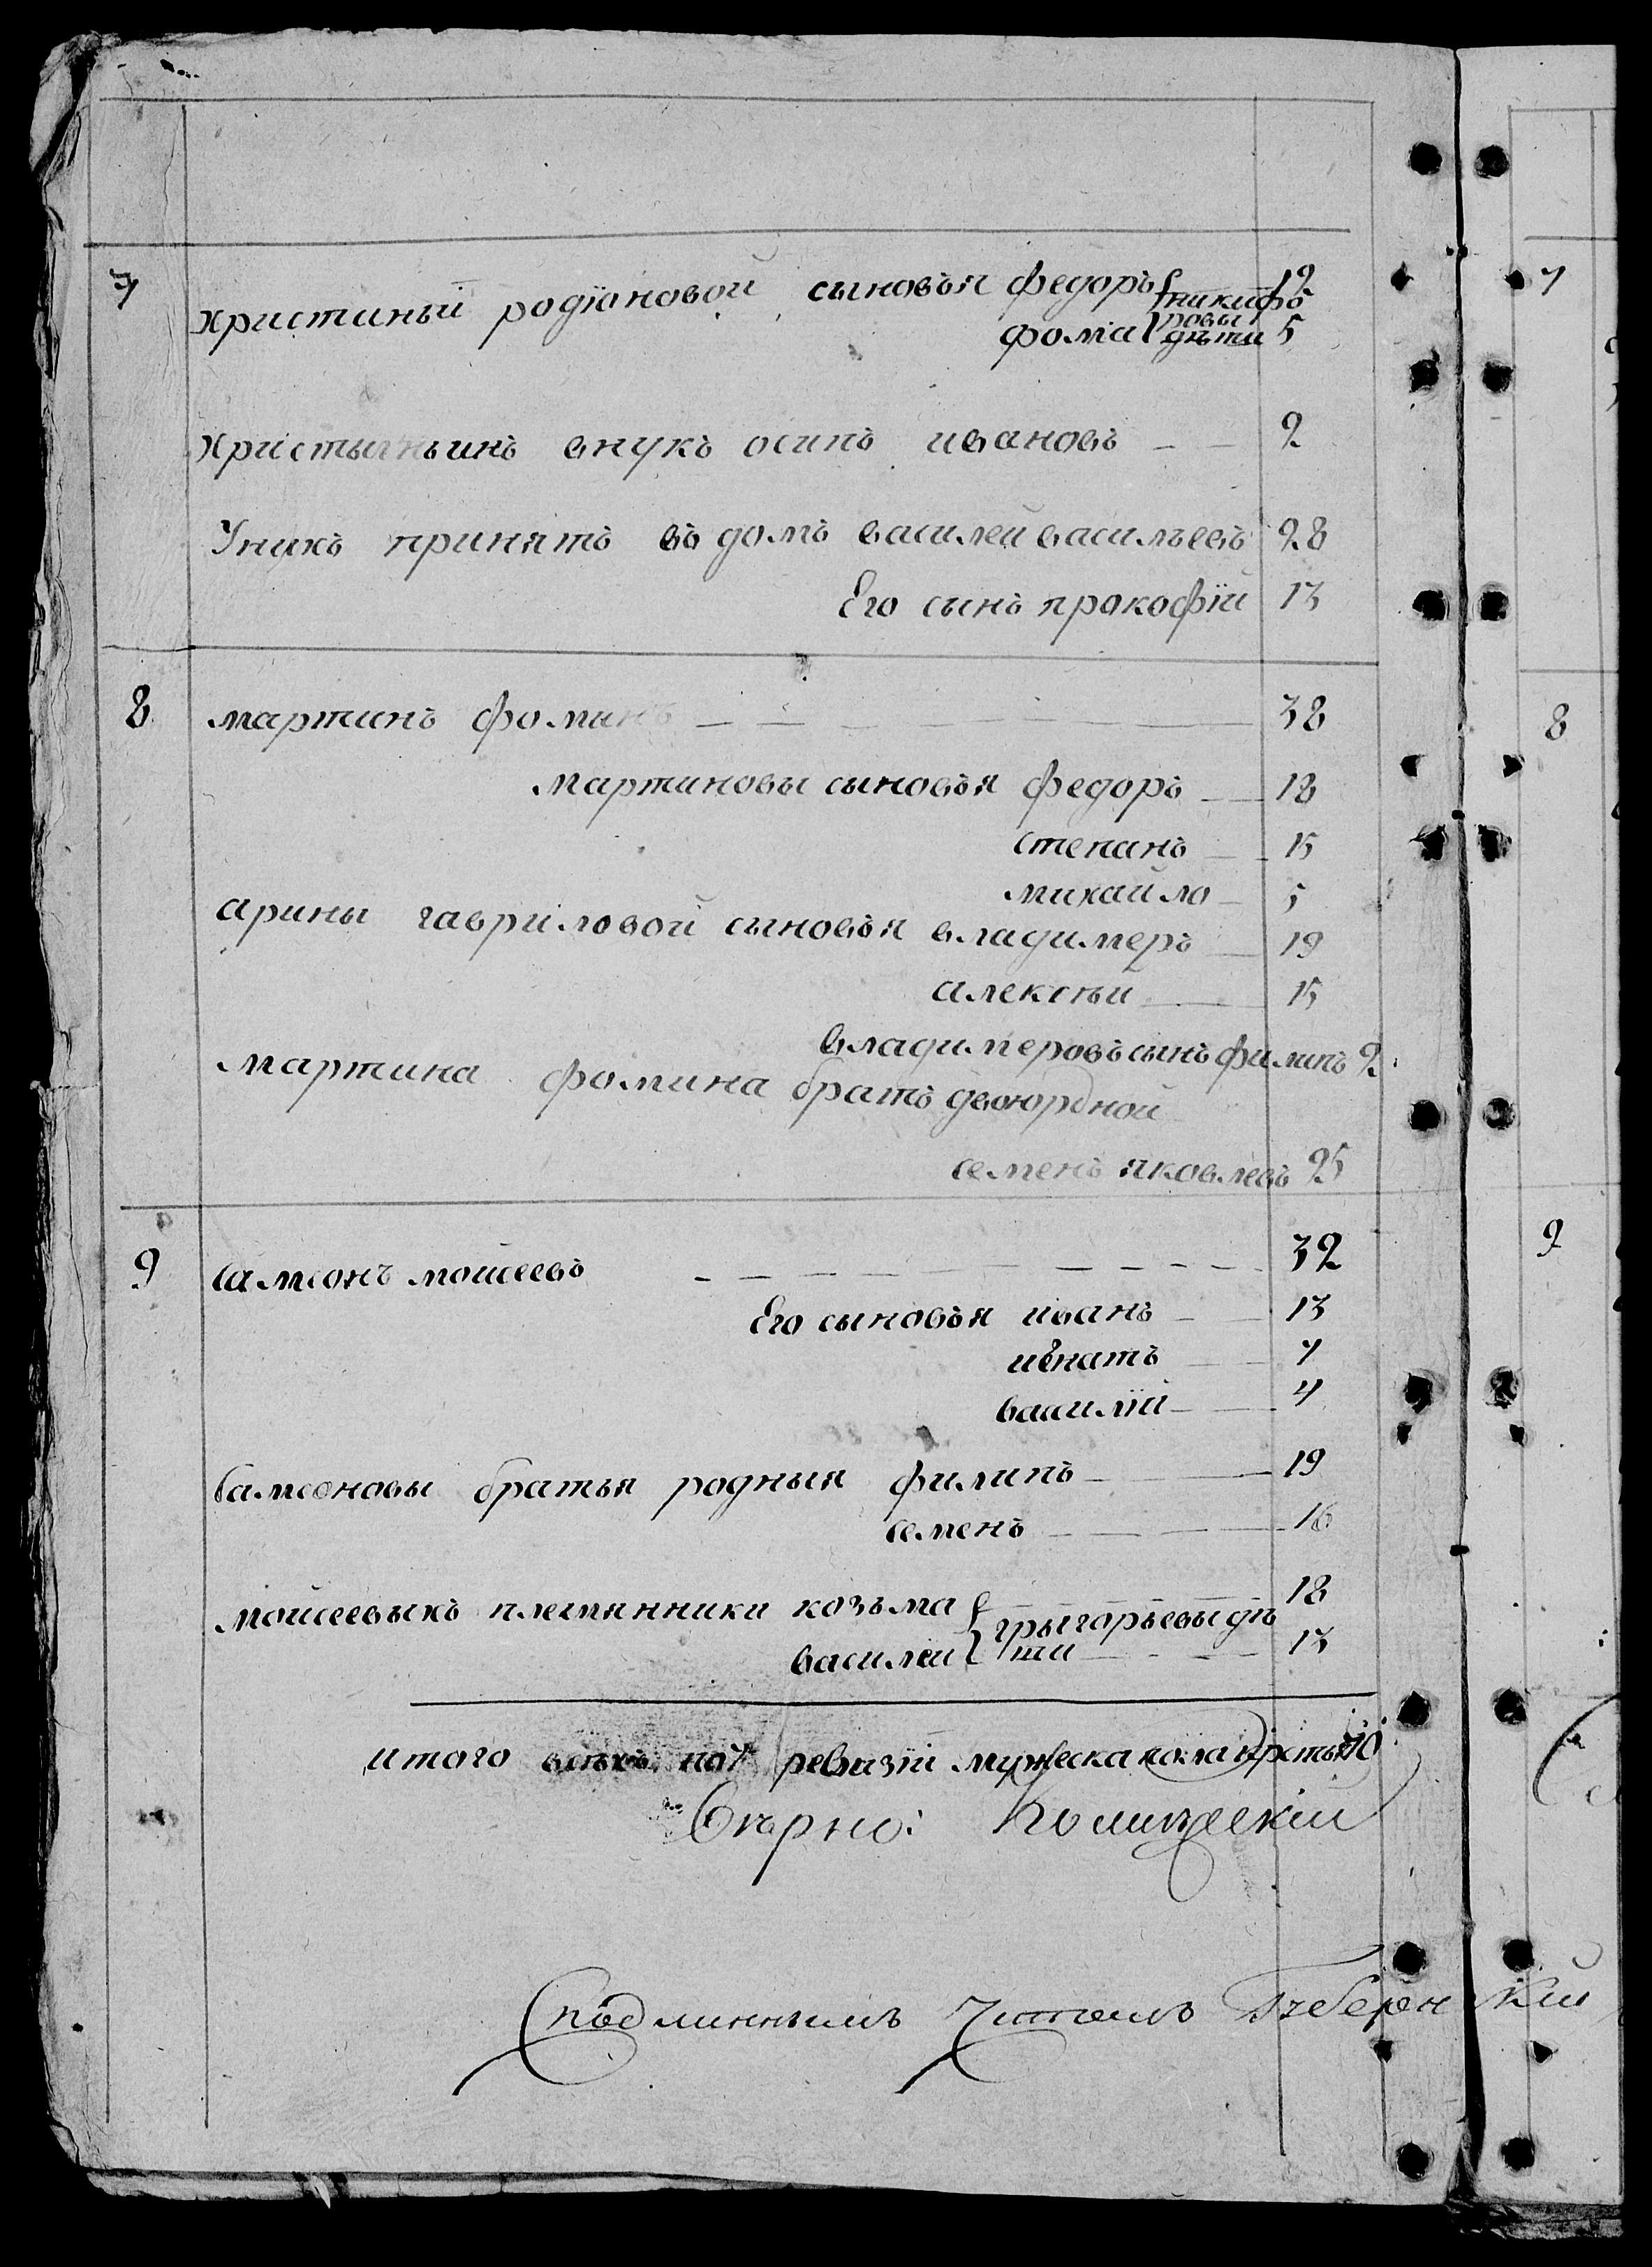 7 христиныи родїоновой сыновья федоръ { никифо 12
ровы
фома } дѣти 5
христыньинъ внукъ осипъ ивановъ 2
Унихъ принятъ въ домъ василей васильевъ 28
Его сынъ прокофїй 13
8 мартинъ фоминъ 38
мартиновы сыновья федоръ 18
степанъ 15
михайло 5
арины гавриловой сыновья владимеръ 19
алексѣи 15
владимеровъ сынъ филипъ 2
мартина фомина братъ двоюрдной
семенъ яковлевъ 25
9 самсонъ мойсеевъ 32
Его сыновья иванъ 13
игнатъ 7
василїй 4
Самсоновы братья родныя филипъ 19
семенъ 16
мойсеевыхъ племянники козьма { грыгорьевы дѣ 18
василїи { ти 13
итого всѣхъ по 7й ревизїи мужеска пола
Вѣрно:
Сподлиннымъ Читалъ
7
8
9